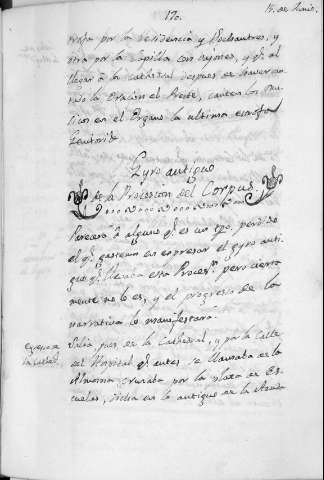 15. de Junio.
170.
trofa por la Residencia y Pochantres, y
otra por la Capilla con bajones, y qe. al
llegar à la Cathedral despues de haver can-
tado la Oracion el Preste, canten los mu-
sicos en el Organo la ultima estrofa
Gyro antiguo
de la Procesion del Corpus.
Parecerà à alguno qe. es un tpo. perdido
el qe. gastemos en expresar el gyro anti-
guo qe. llevaba esta Proces.n pero cierta
mente no lo es, y el progreso de la
narrativa lo manifestarà.
Salia pues de la Cathedral, y por la Calle
del Hospital qe. antes se llamaba de la
Almoina cruzaba por la plaza de Es-
cuelas, dicha en lo antiguo de la